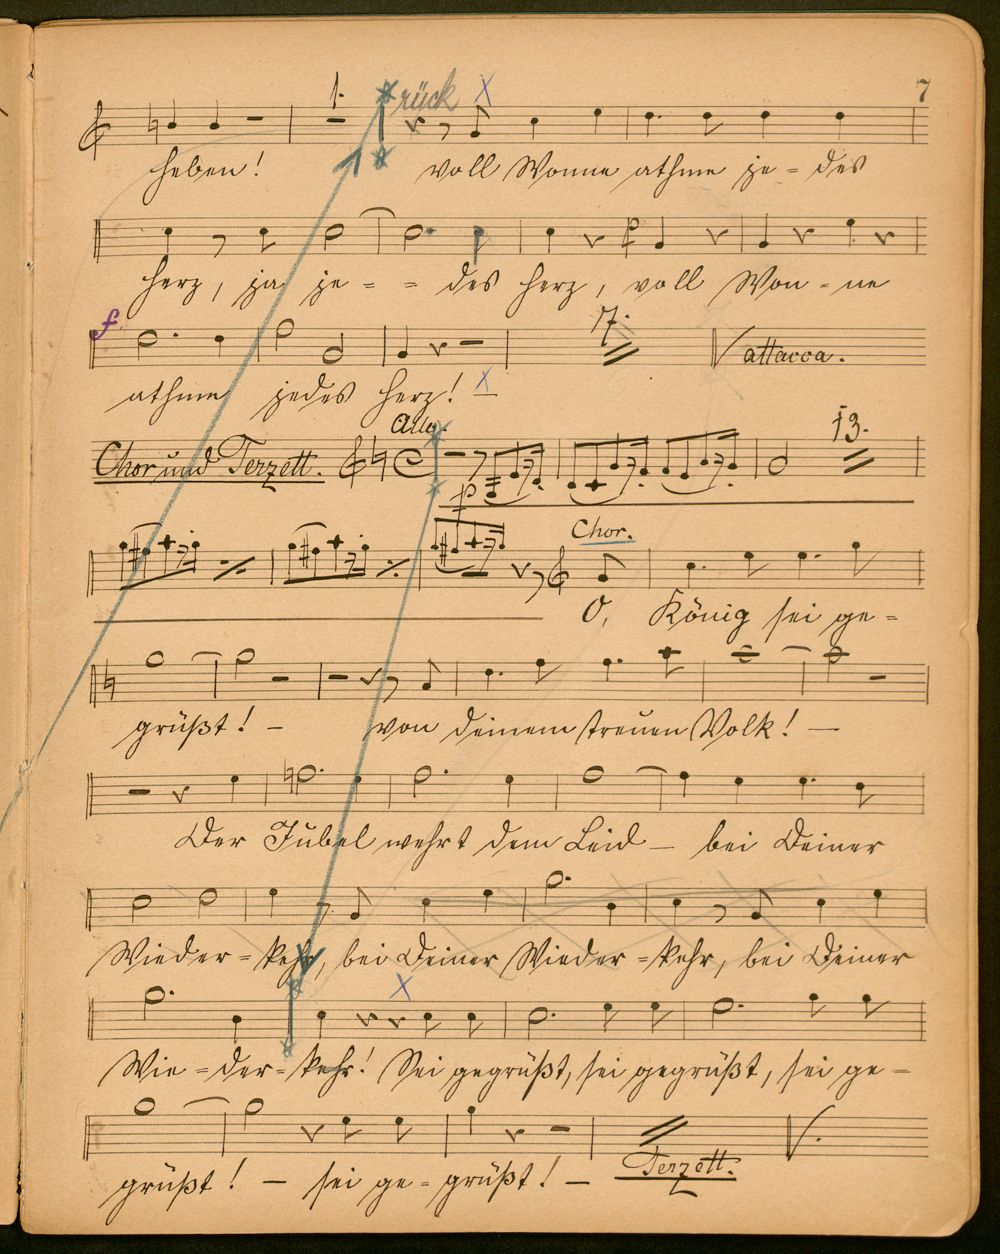 7
1. rück X
heben! voll Wonne athme je = des
herz, ja je = = des herz, voll Won = ne
f. 17. attacca.
athme jedes herz! X
Allo.
Chor und Terzett. 13.
p
Chor.
O, König sei ge =
grüßt! – von deinem treuen Volk! –
Der Jubel wehrt dem Leid – bei Deiner
Wieder = kehr, bei Deiner Wieder = kehr, bei Deiner
X
Wie = der = kehr! Sei gegrüßt, sei gegrüßt, sei ge =
grüßt! – sei ge = grüßt! – Terzett.